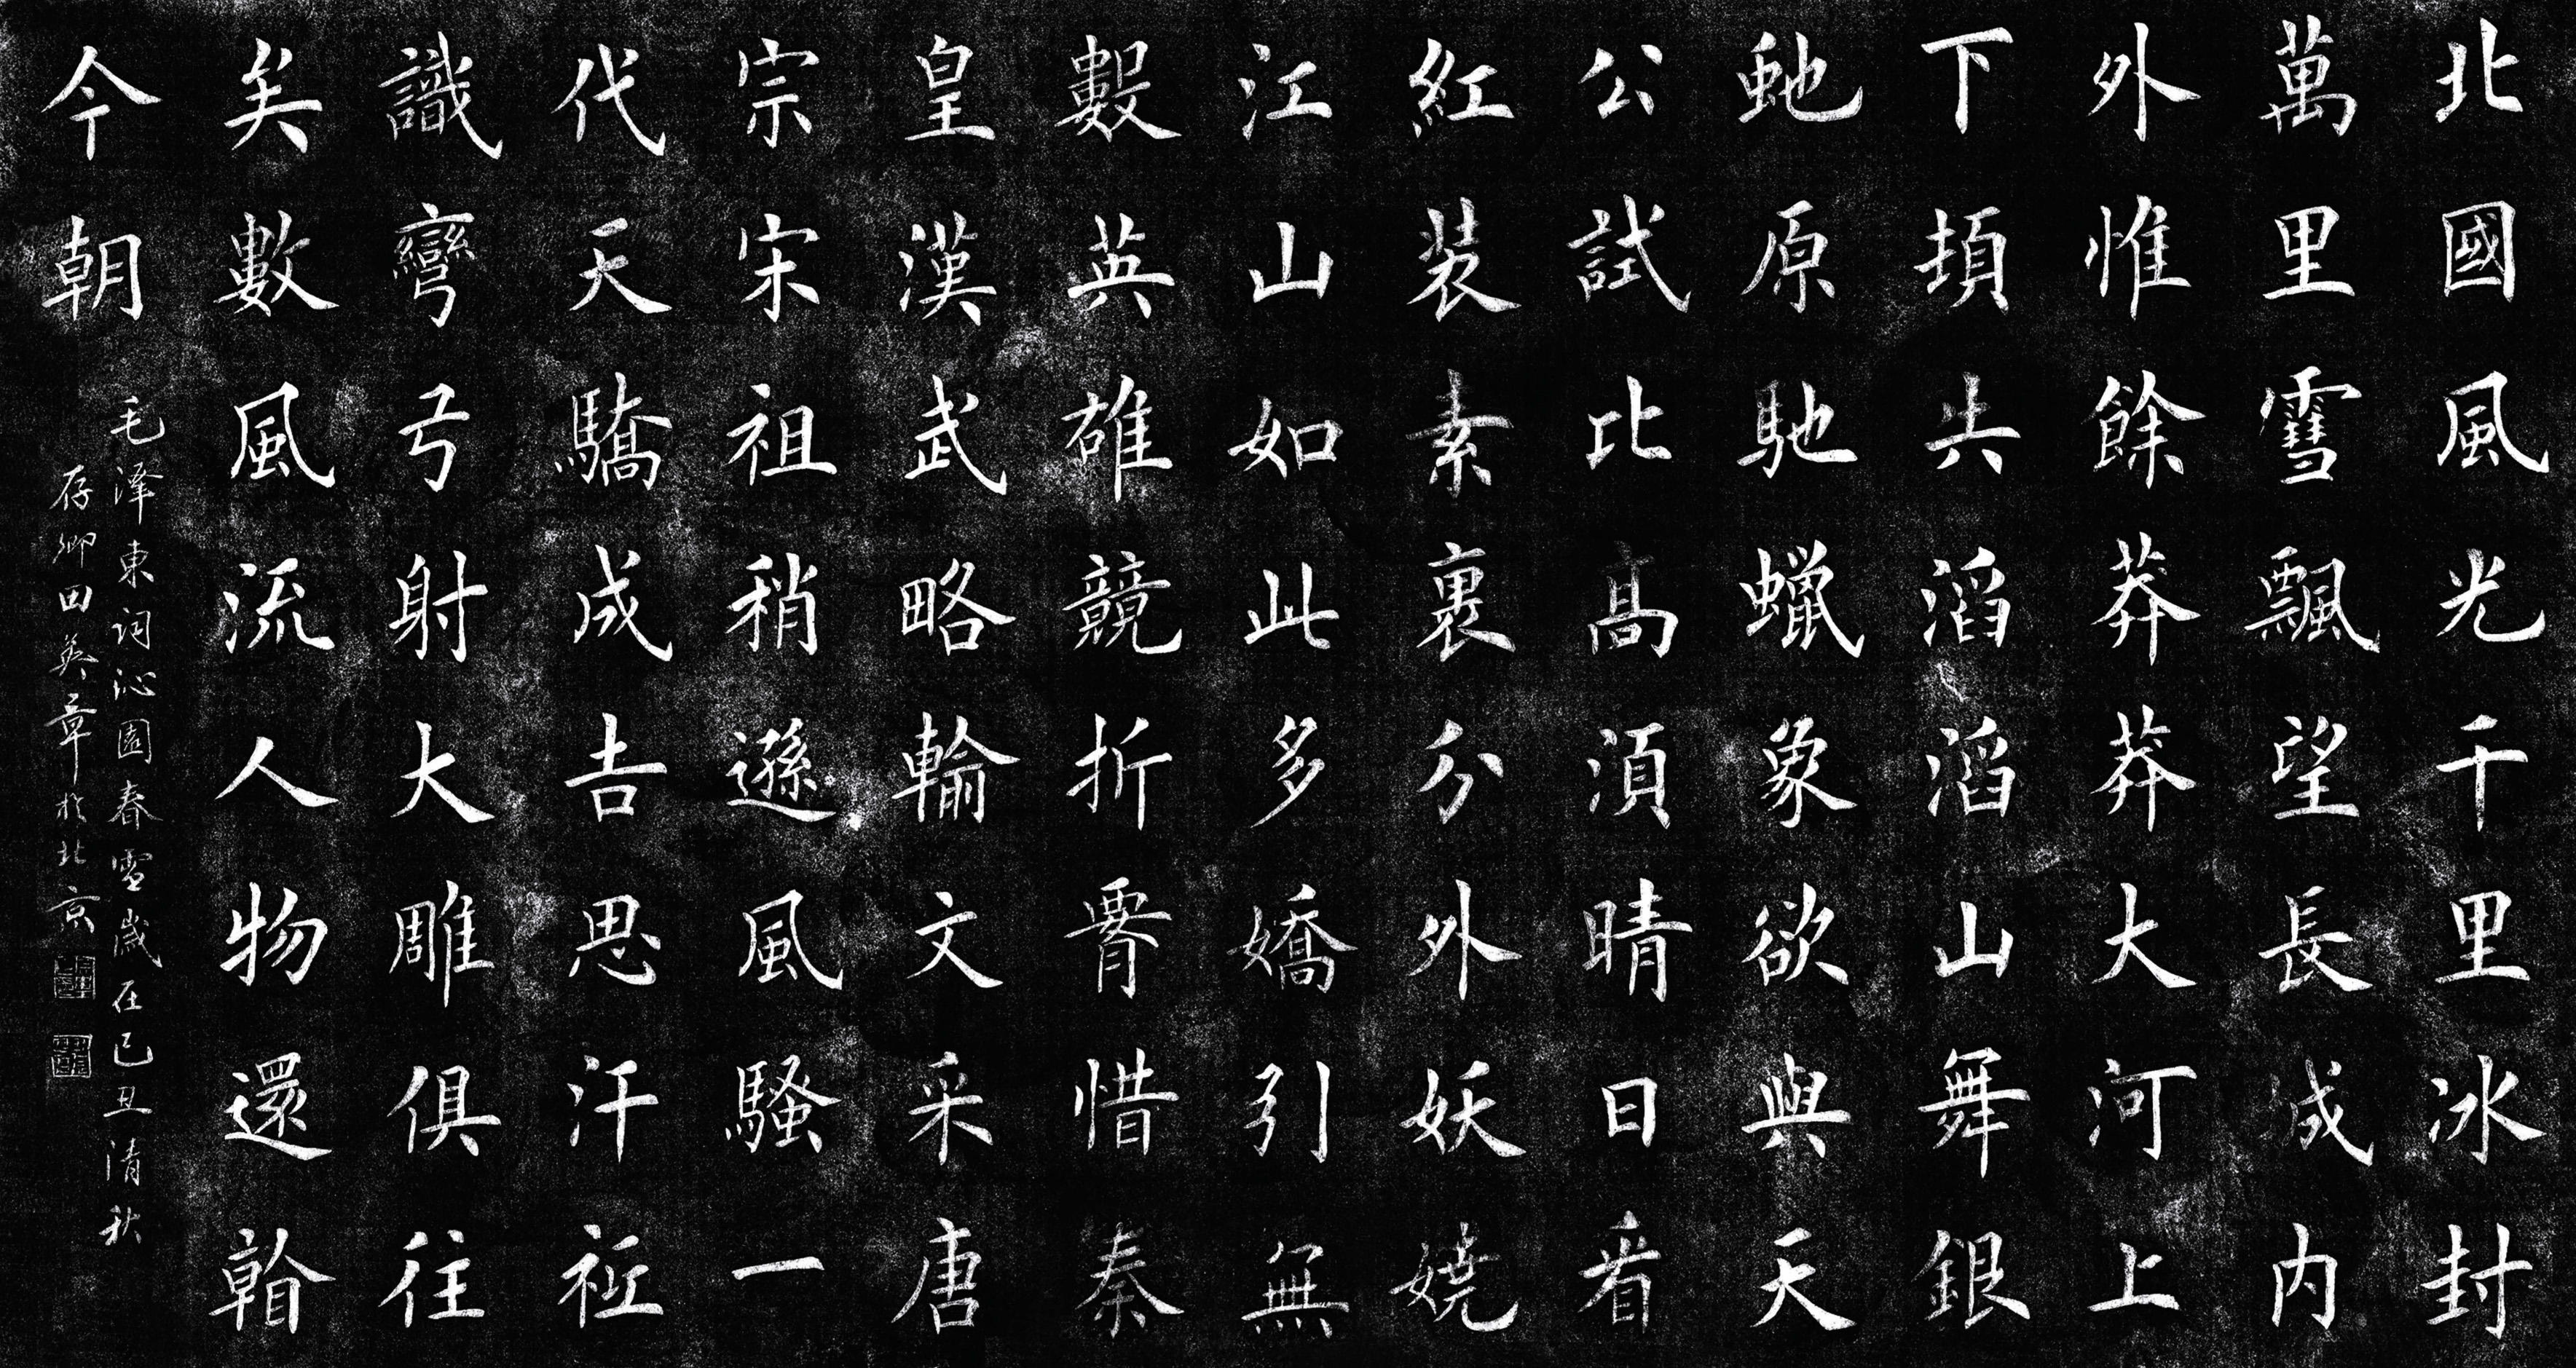 北國風光千里冰封
萬里雪飄望長城内
外惟餘莽莽大河上
下頓失滔滔山舞銀
虵原馳蠟象欲與天
公試比高須晴日看
紅装素裹分外妖嬈
江山如此多嬌引無
數英雄競折腰惜秦
皇漢武略輸文采唐
宗宋祖稍遜風騷一
代天驕成吉思汗祗
識彎弓射大雕俱往
矣數風流人物還看
今朝
毛澤東詞沁園春雪歲在己丑清秋
存卿田英章於北京